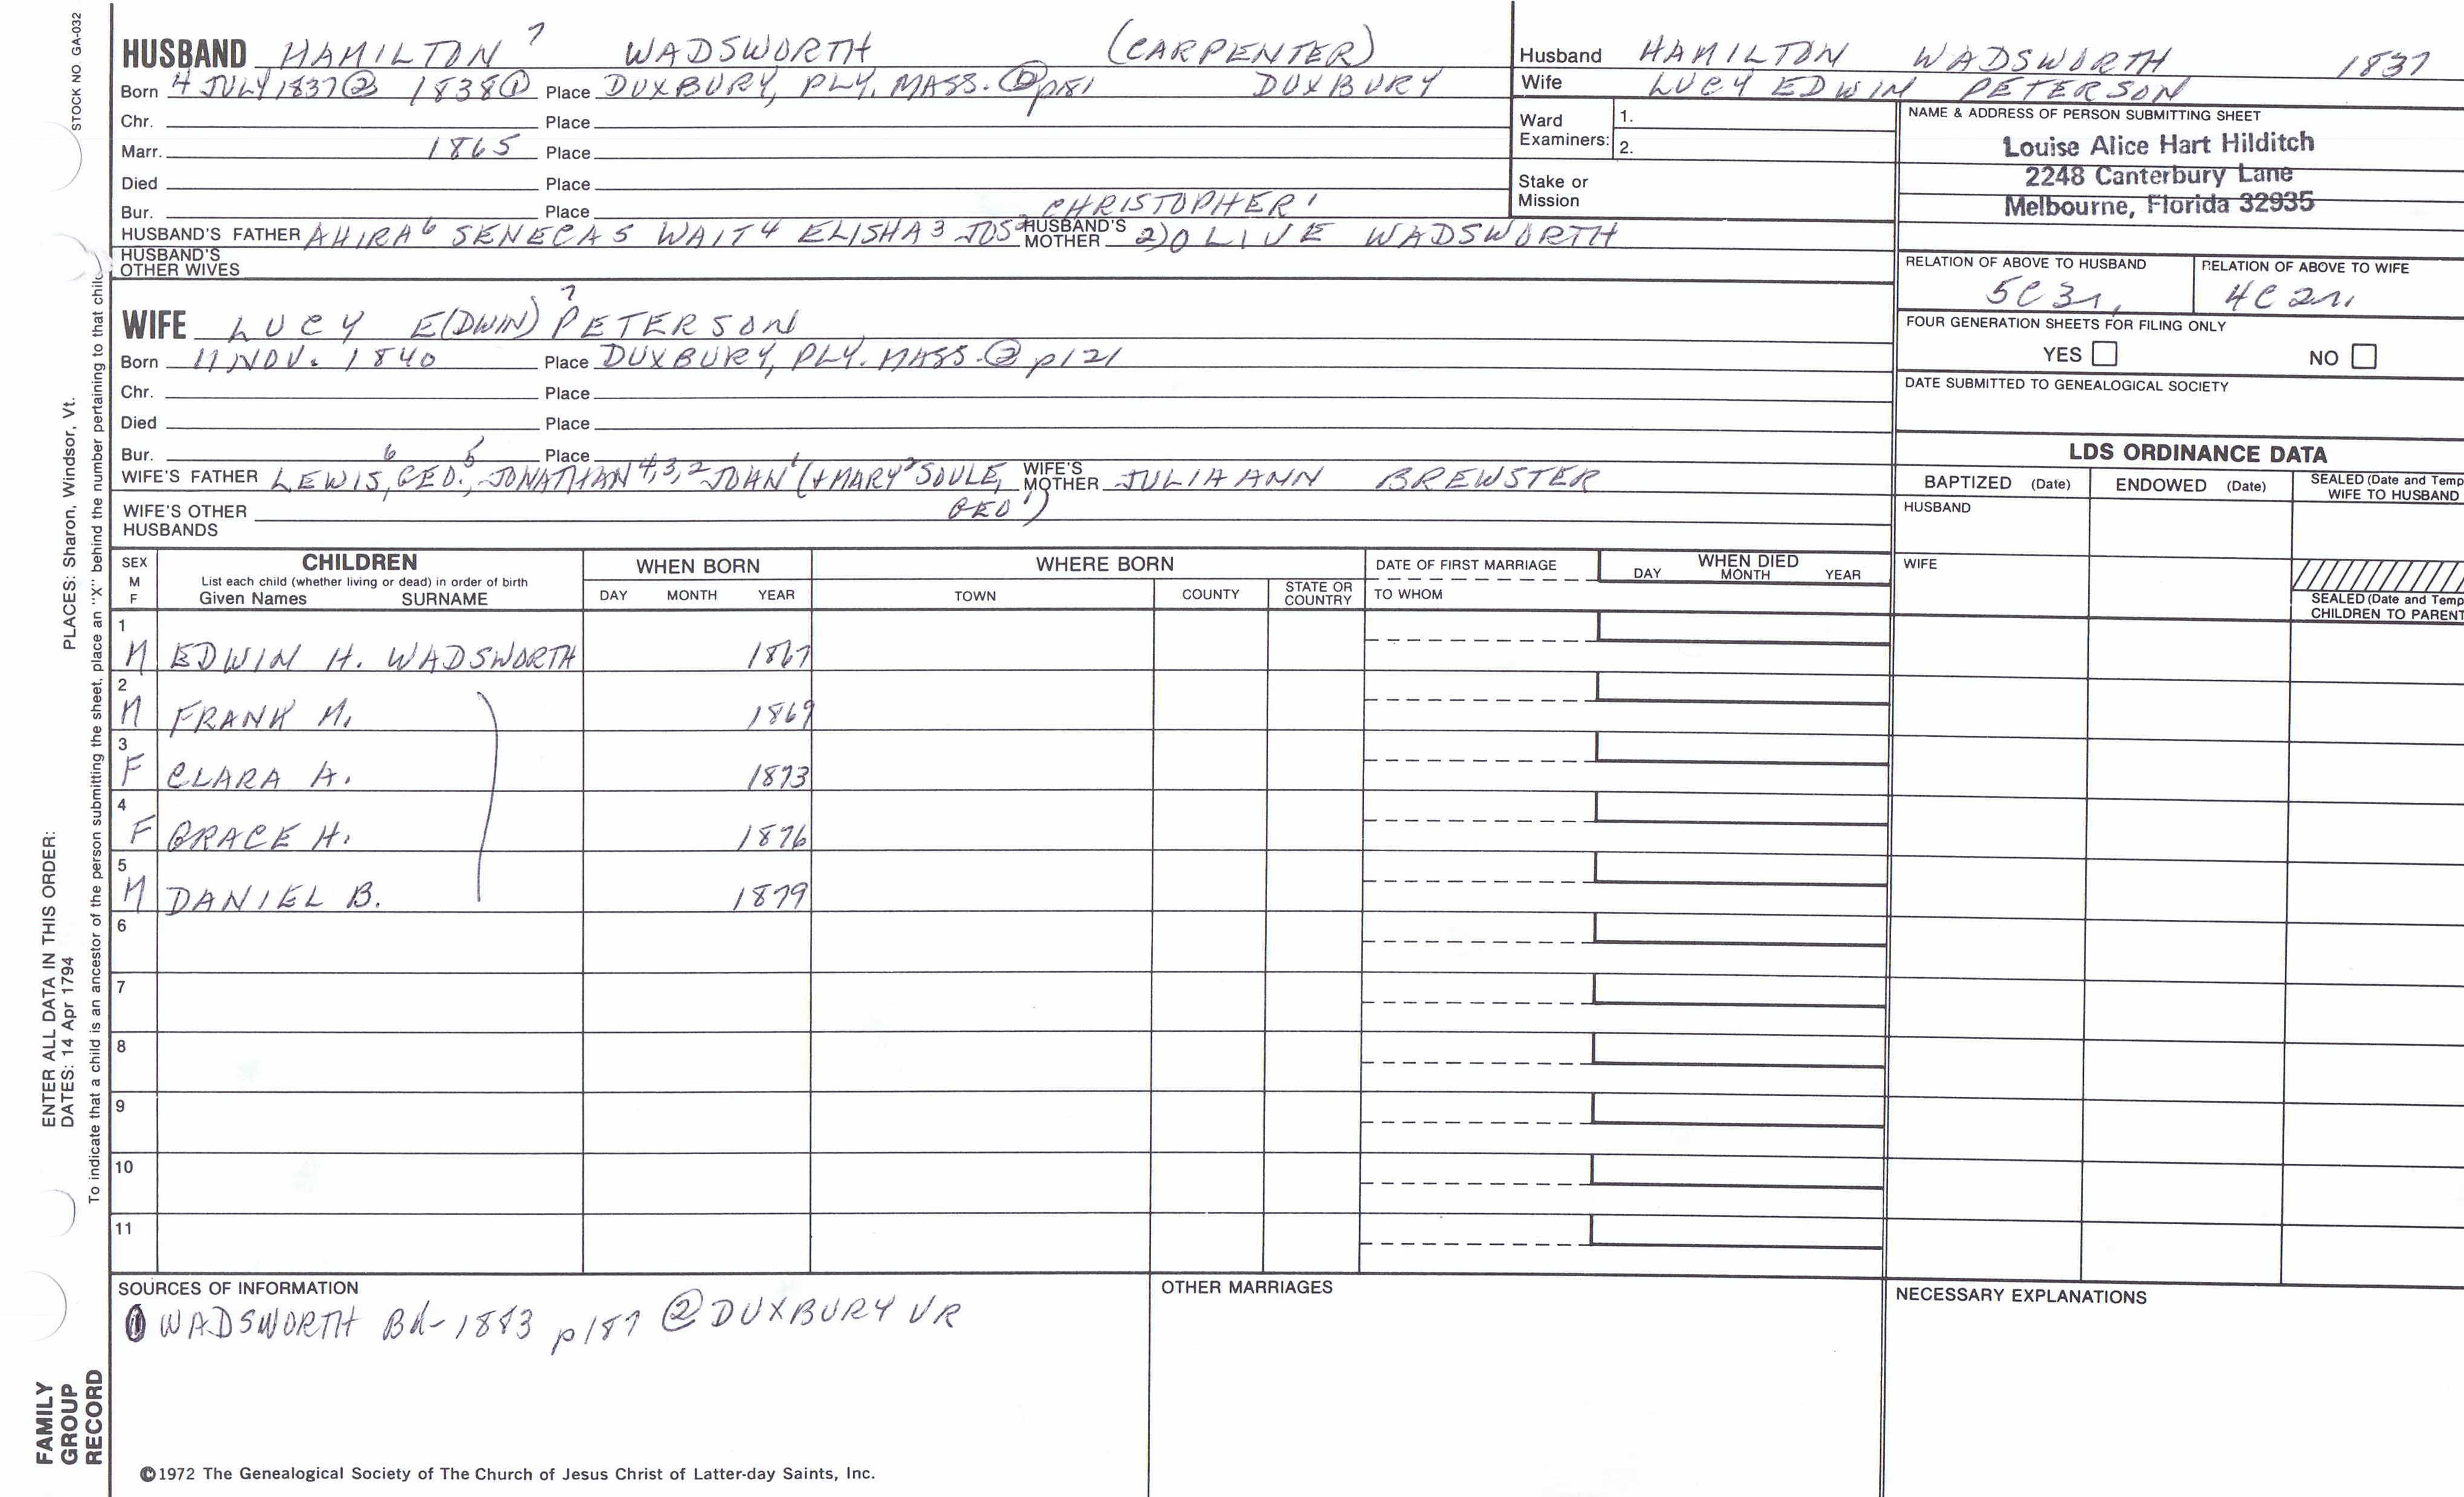 STOCK NO. GA-032
HUSBAND HAMILTON 7 WADSWORTH (CARPENTER)
Born 4 JULY 1837② 1838① Place DUXBURY, PLY. MASS. ② p181 DUXBURY
Chr. Place
Marr. 1865 Place
Died Place
Bur. Place CHRISTOPHER 1
HUSBAND'S FATHER AHIRA 6 SENECA 5 WAIT 4 ELISHA 3 JOS 2 HUSBAND'S MOTHER 2) OLIVE WADSWORTH
HUSBAND'S OTHER WIVES
WIFE LUCY E(DWIN) 7 PETERSON
Born 11 NOV. 1840 Place DUXBURY, PLY. MASS. ② p121
Chr. Place
Died Place
Bur. Place
WIFE'S FATHER LEWIS 6, GEO. 5, JONATHAN 4,3,2 JOHN 1 (+ MARY 2 SOULE, WIFE'S MOTHER JULIA ANN BREWSTER
GEO 1)
WIFE'S OTHER HUSBANDS
Husband HAMILTON WADSWORTH 1837
Wife LUCY EDWIN PETERSON
Ward Examiners: 1.
2.
Stake or Mission
NAME & ADDRESS OF PERSON SUBMITTING SHEET
Louise Alice Hart Hilditch
2248 Canterbury Lane
Melbourne, Florida 32935
RELATION OF ABOVE TO HUSBAND RELATION OF ABOVE TO WIFE
5C3r. 4C2r.
FOUR GENERATION SHEETS FOR FILING ONLY
YES NO
DATE SUBMITTED TO GENEALOGICAL SOCIETY
LDS ORDINANCE DATA
BAPTIZED (Date) ENDOWED (Date) SEALED (Date and Temp
WIFE TO HUSBAND
HUSBAND
WIFE
SEALED (Date and Temp
CHILDREN TO PARENT
SEX M F CHILDREN WHEN BORN WHERE BORN DATE OF FIRST MARRIAGE WHEN DIED
List each child (whether living or dead) in order of birth
Given Names SURNAME DAY MONTH YEAR TOWN COUNTY STATE OR COUNTRY TO WHOM DAY MONTH YEAR
1 M EDWIN H. WADSWORTH 1867
2 M FRANK M. 1869
3 F CLARA A. 1873
4 F GRACE H. 1876
5 M DANIEL B. 1879
6
7
8
9
10
11
SOURCES OF INFORMATION
① WADSWORTH Bk-1883 p187 ② DUXBURY VR
OTHER MARRIAGES
NECESSARY EXPLANATIONS
©1972 The Genealogical Society of The Church of Jesus Christ of Latter-day Saints, Inc.
FAMILY
GROUP
RECORD
ENTER ALL DATA IN THIS ORDER:
DATES: 14 Apr 1794 PLACES: Sharon, Windsor, Vt.
To indicate that a child is an ancestor of the person submitting the sheet, place an "X" behind the number pertaining to that child